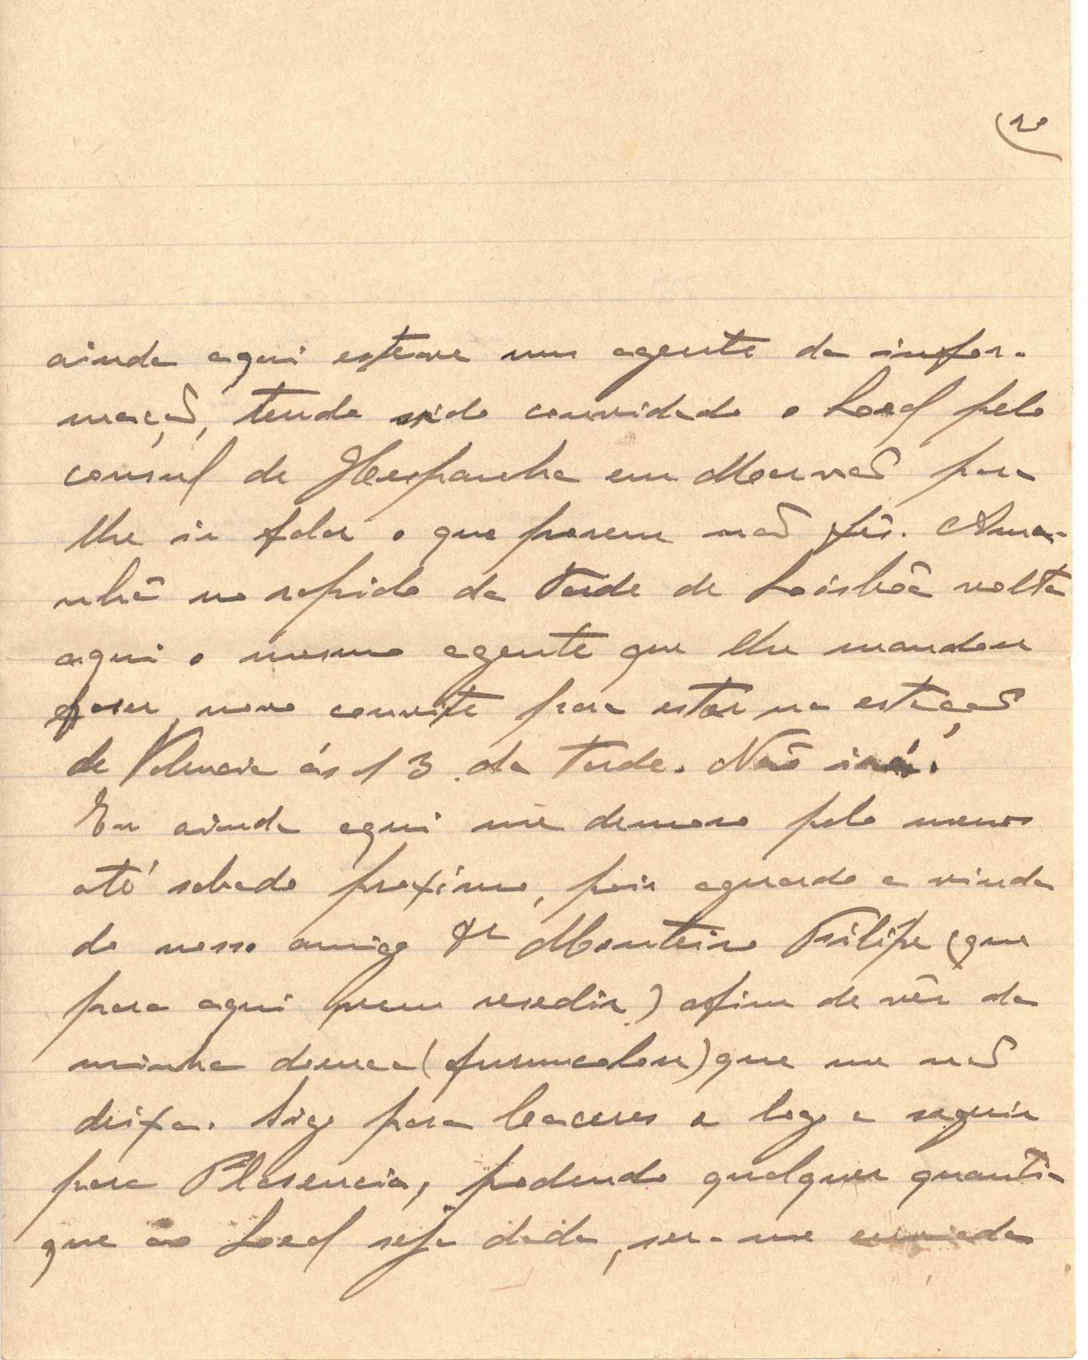 (2º
ainda aqui esteve um agente da infor-
mação, tendo sido convidado o Losef pelo
consul de Hespanha em Marvão para
lhe ir falar o que porem não fês. Ama-
nhã no rapido da tarde de Loisbôa volta
aqui o mesmo agente que lhe mandou
fazer novo convite para estar na estação
de Valencia ás 13 da tarde. Não irá.
Eu ainda aqui me demoro pelo menos
até sabado proximo, pois aguardo a vinda
do nosso amigo Dr Monteiro Filipe (que
para aqui vem resedir) afim de vêr da
minha doença (furunculose) que me não
deixa. Sigo para Caceres e logo a seguir
para Plasencia, podendo qualquer quantia
que ao Losef seja dada, ser-me enviada